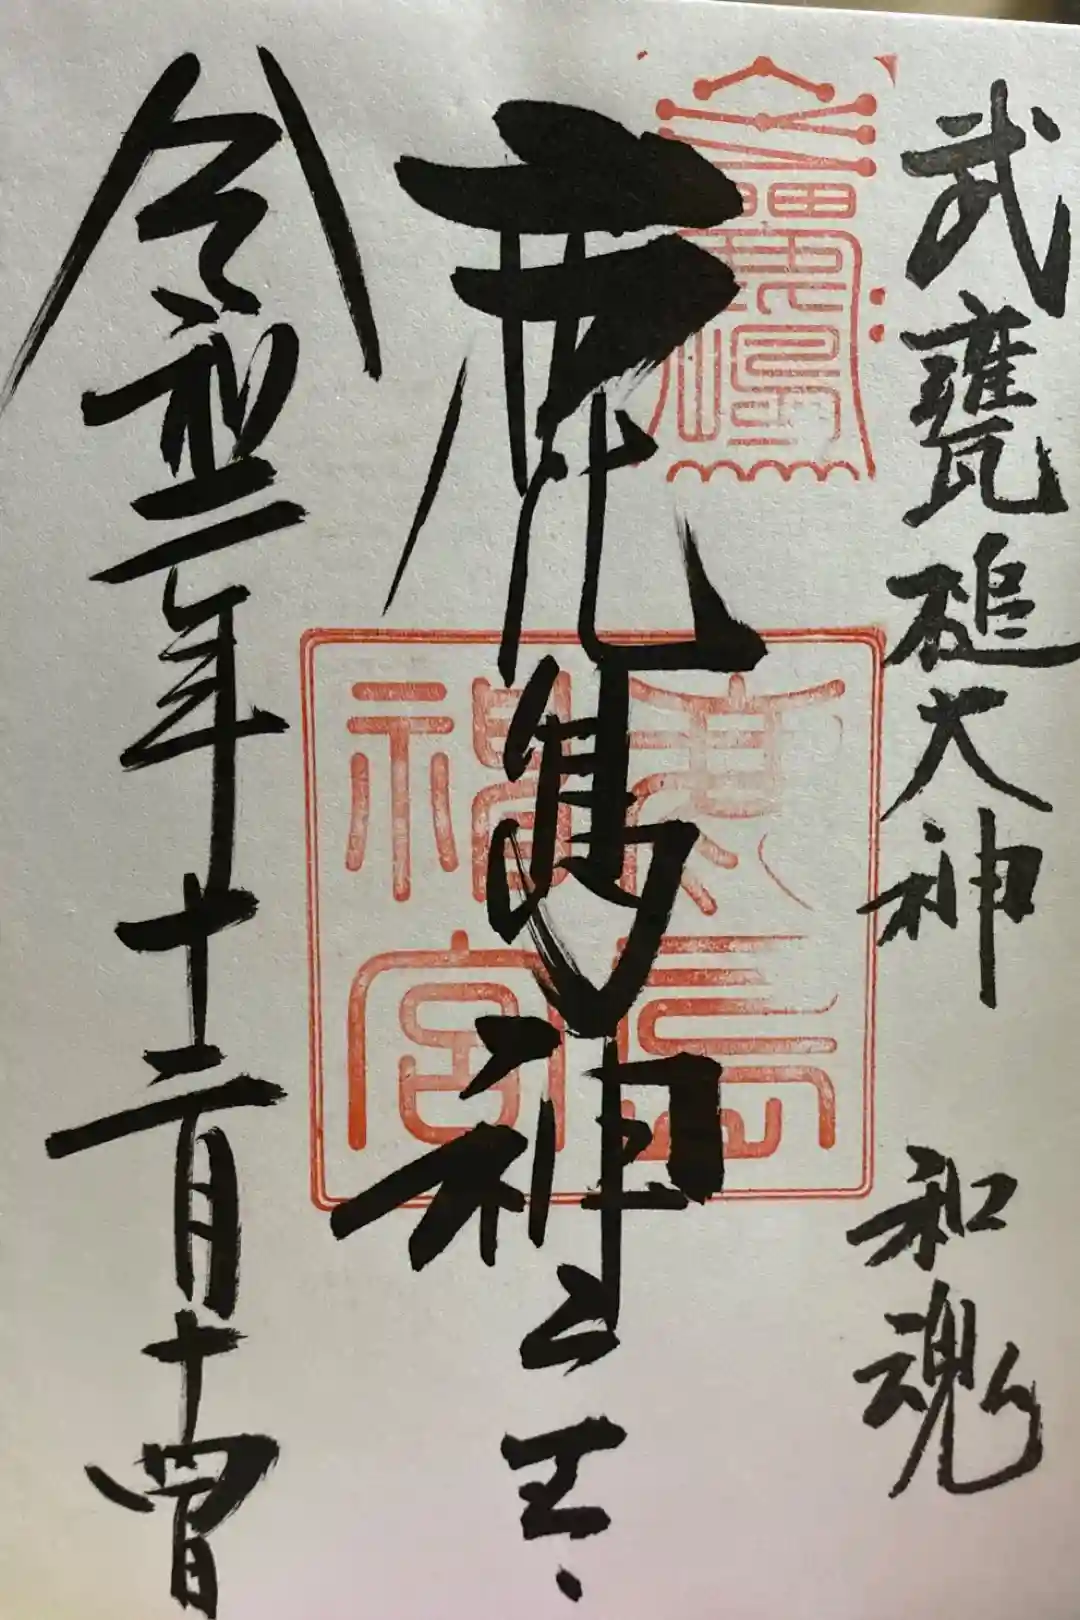 武甕槌大神　和魂
鹿島神
鹿島神宮
令和二年十二月十四日